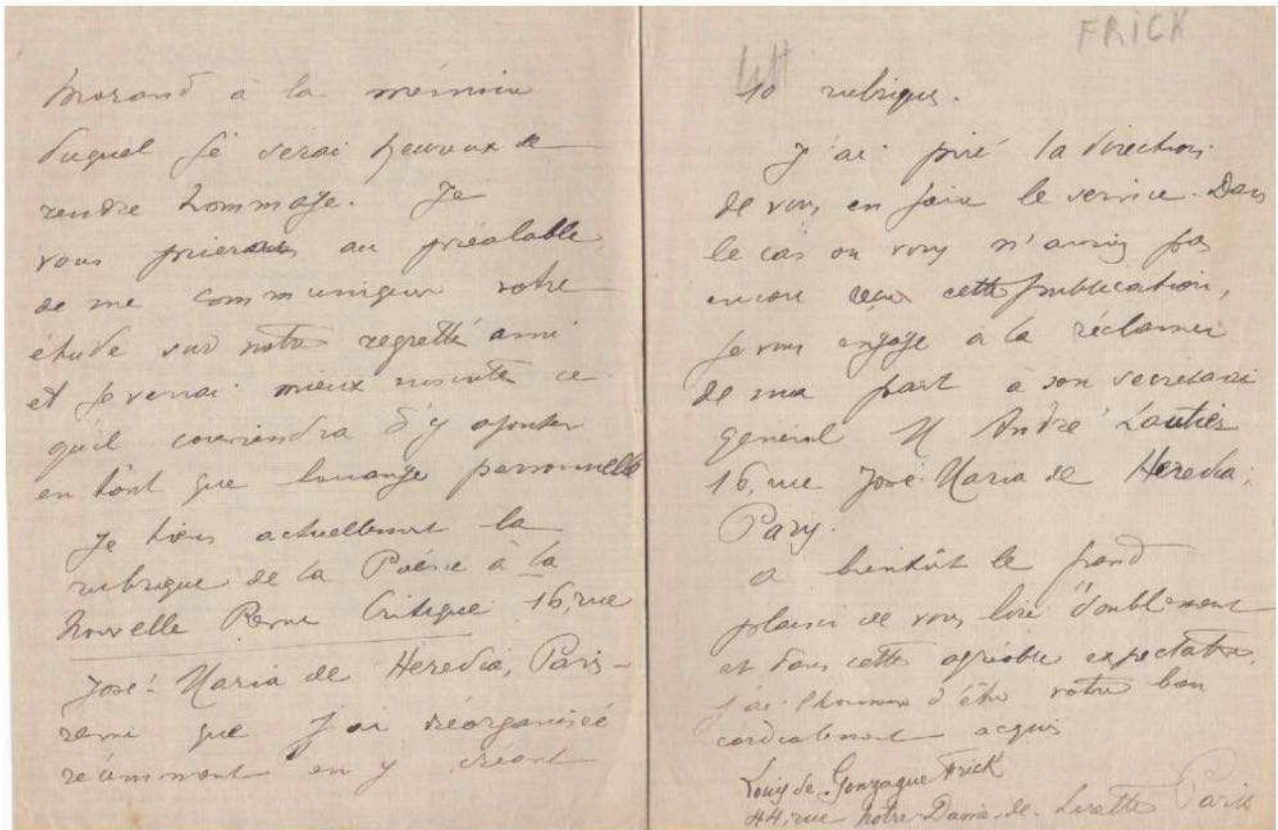 Morand à la mémoire
duquel je serai heureux de
rendre hommage. Je
vous prierais au préalable
de me communiquer votre
étude sur notre regretté ami
et je verrai mieux ensuite ce
qu'il conviendra d'y ajouter
en tant que louange personnelle
Je tiens actuellement la
rubrique de la Poésie à la
Nouvelle Revue Critique 16, rue
José-Maria de Heredia, Paris-
revue que j'ai réorganisée
récemment en y créant
FRICK
40 rubriques.
J'ai prié la direction
de vous en faire le service. Dans
le cas où vous n'auriez pas
encore reçu cette publication,
je vous engage à la réclamer
de ma part à son secrétaire
général M André Lautier
16, rue José-Maria de Heredia,
Paris.
à bientôt le grand
plaisir de vous lire doublement
et dans cette agréable expectative,
j'ai l'honneur d'être votre bon
cordialement acquis
Louis de Gonzague Frick
44, rue Notre-Dame-de-Lorette Paris